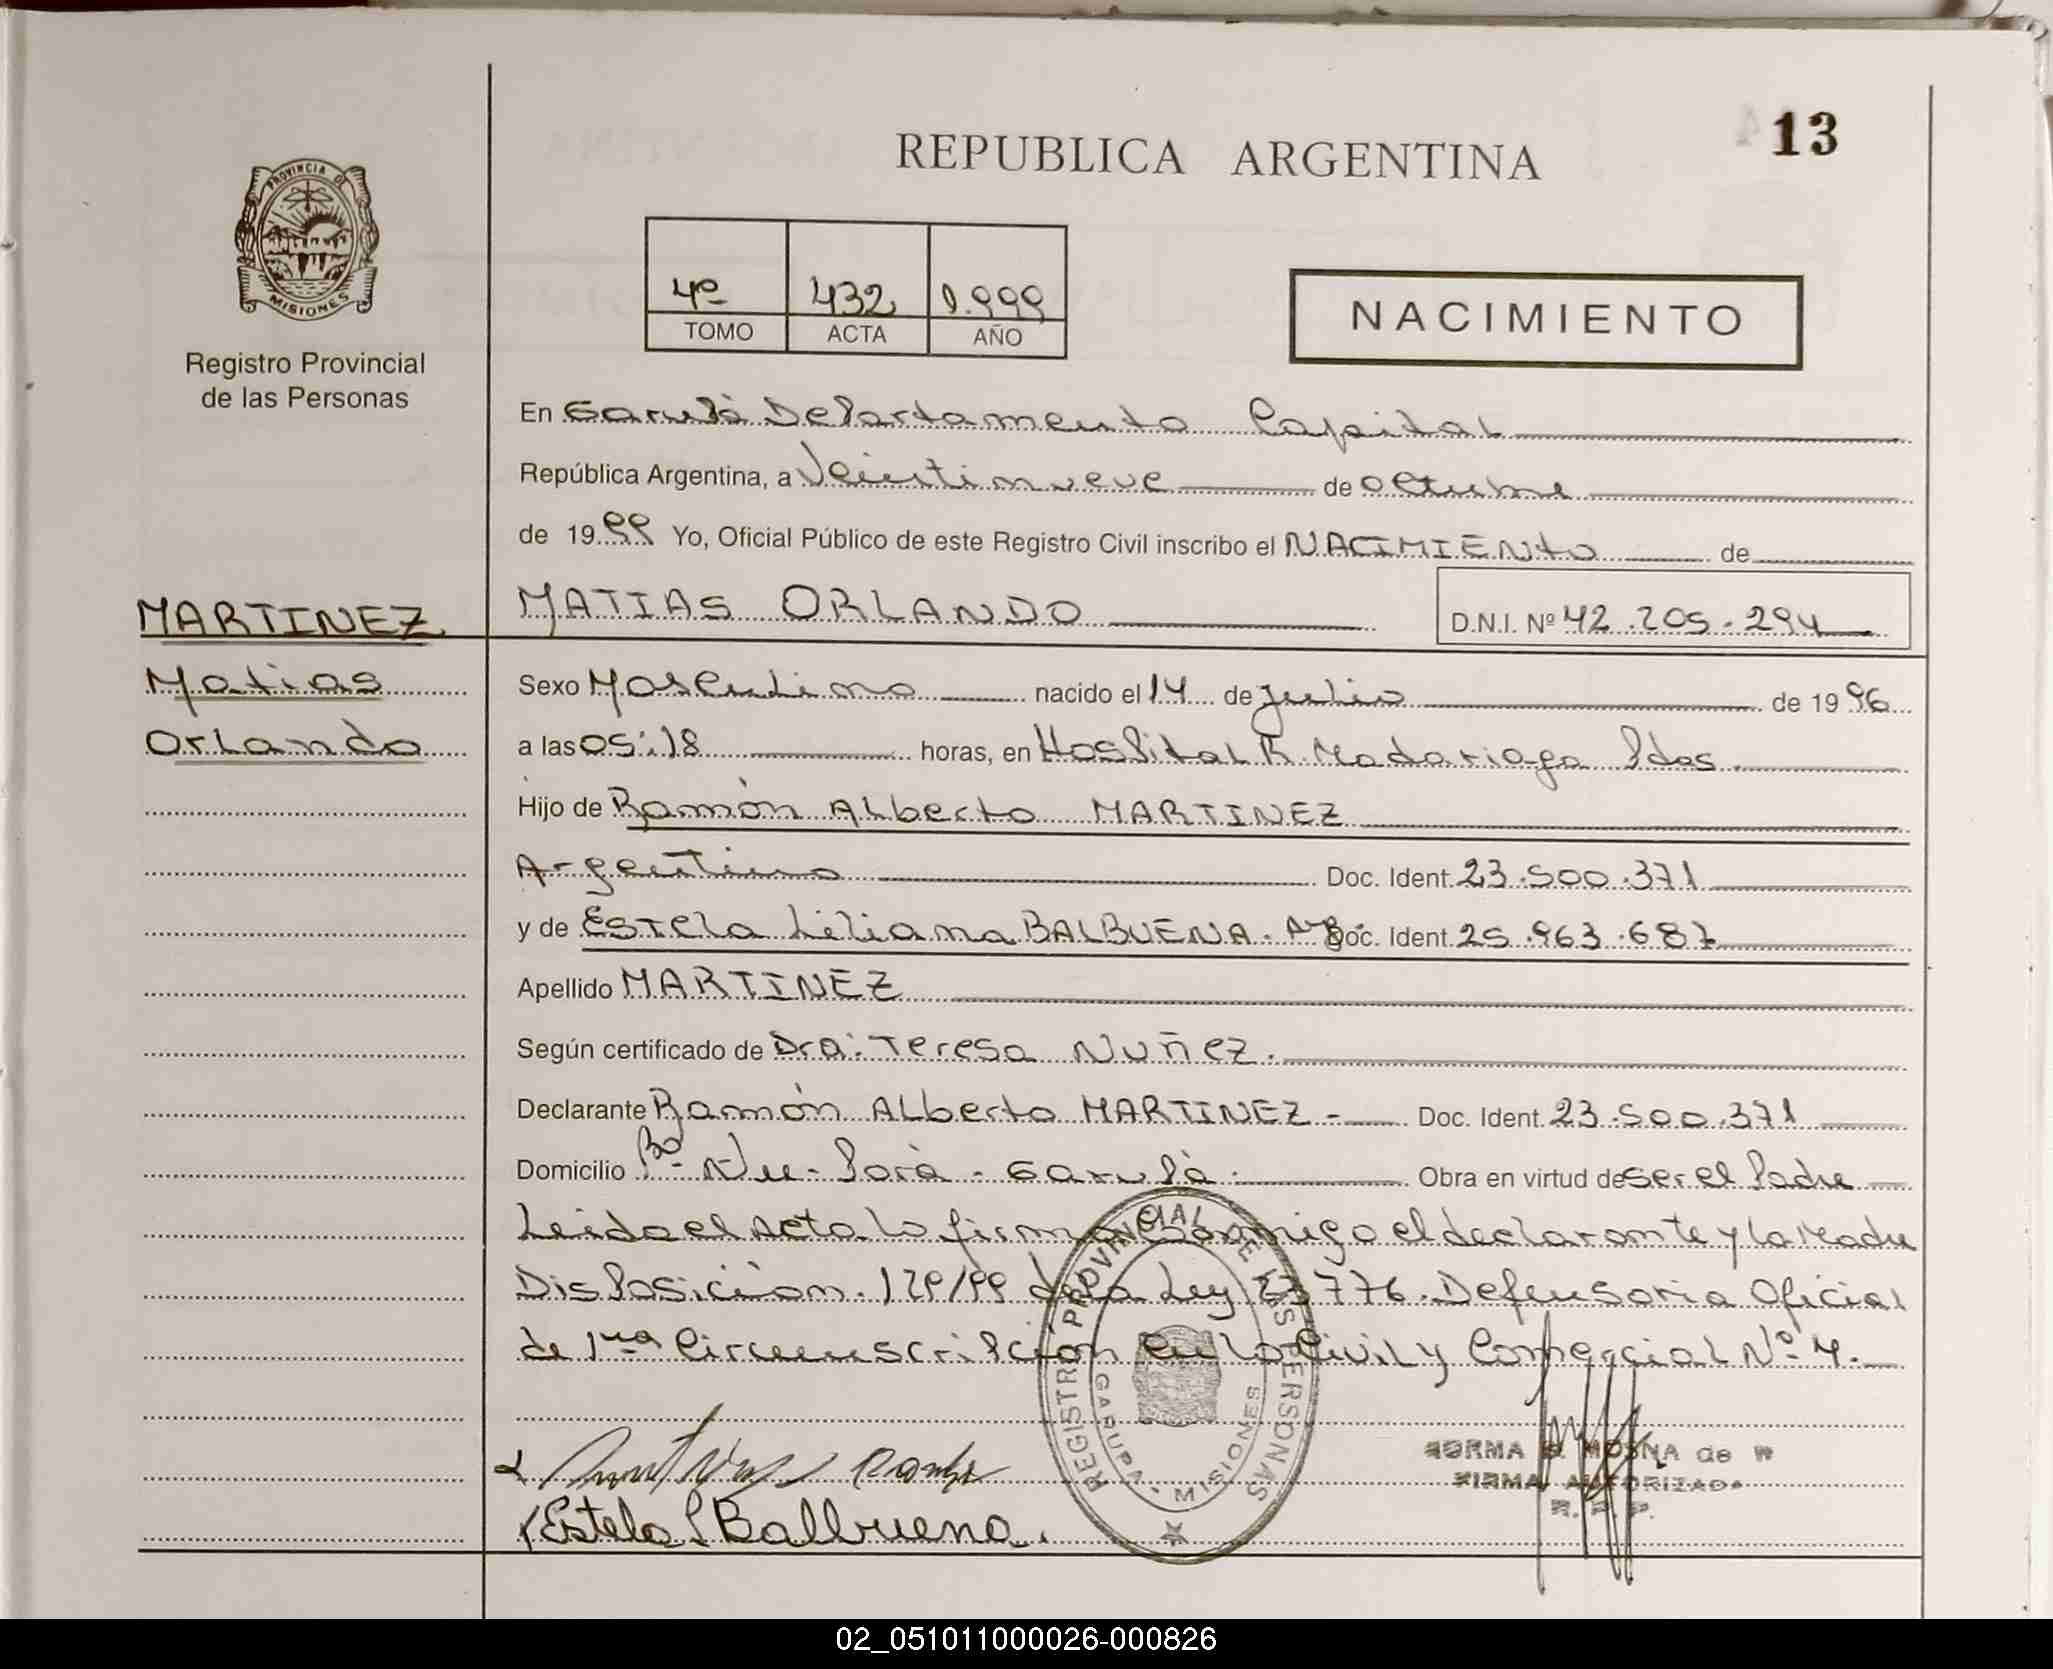 13
REPUBLICA ARGENTINA
PROVINCIA DE
MISIONES
Registro Provincial
de las Personas
4º 432 1.999
TOMO ACTA AÑO
NACIMIENTO
En Garupá Departamento Capital
República Argentina, a Veintinueve de octubre
de 1999 Yo, Oficial Público de este Registro Civil inscribo el NACIMIENto de
MARTINEZ
Matias
Orlando
MATIAS ORLANDO D.N.I. Nº 42.205.294
Sexo Masculino nacido el 14 de julio de 1996
a las 05:18 horas, en Hospital R. Madariaga Pdas.
Hijo de Ramón Alberto MARTINEZ
Argentino Doc. Ident. 23.500.371
y de Estela Liliana BALBUENA. Arg. Doc. Ident. 25.963.687
Apellido MARTINEZ
Según certificado de Dra: Teresa Nuñez.
Declarante Ramón Alberto MARTINEZ - Doc. Ident. 23.500.371
Domicilio Bº- Ñu- Porá - Garupá. Obra en virtud de ser el Padre
Leida el Acta lo firma conmigo el declarante y la Madre
Disposición. 129/99 de la Ley 23776. Defensoria Oficial
de 1ra Circunscripción en lo Civil y Comercial Nº 4.
REGISTRO PROVINCIAL DE LAS PERSONAS
GARUPA - MISIONES
NORMA MOSNA de
FIRMA AUTORIZADA
R. P. P.
Estela L Balbuena.
02_051011000026-000826